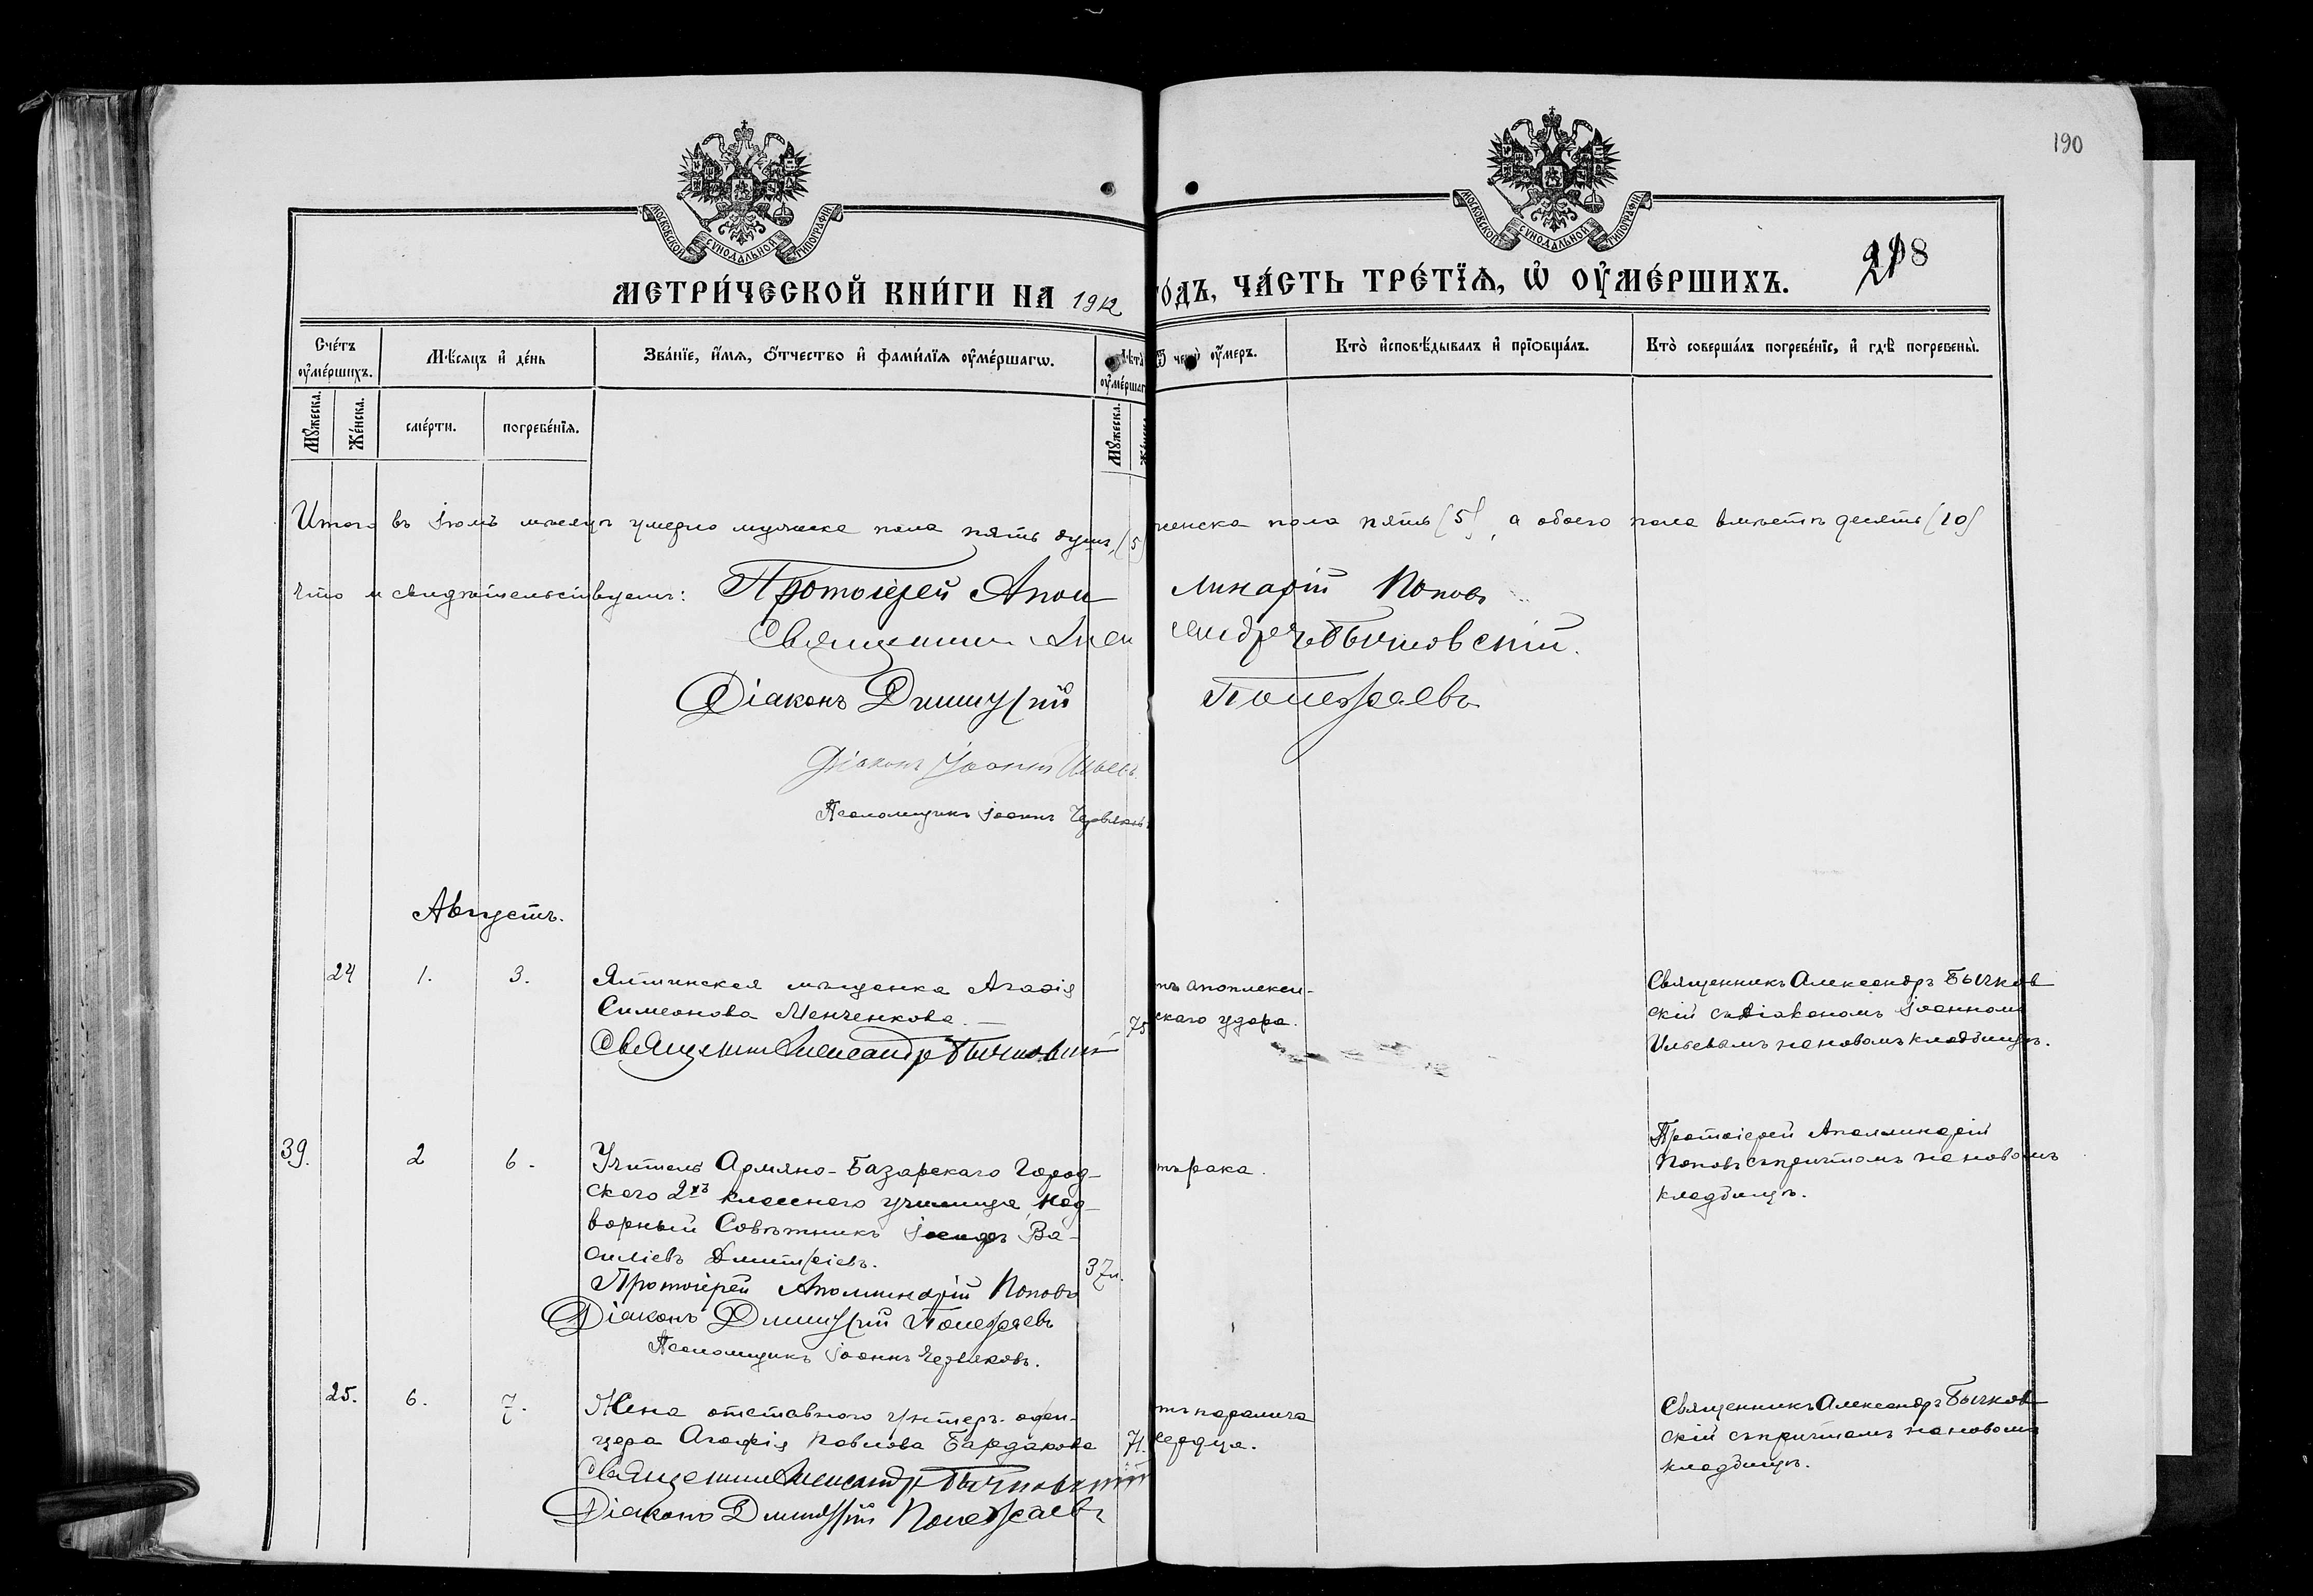 190
МОСКОВСКОЙ СѴНОДАЛЬНОЙ ТИПОГРАФІИ
МОСКОВСКОЙ СѴНОДАЛЬНОЙ ТИПОГРАФІИ
МЕТРИ́ЧЕСКОЙ КНИ́ГИ НА 1912 ГО́ДЪ, ЧА́СТЬ ТРЕ́ТЇѦ, Ѡ҆ ОУ҆МЕ́РШИХЪ.
Сче́тъ оу҆ме́ршихъ.
Мѣ́сяцъ и҆ де́нь
Зва́нїе, и҆́мѧ, ѻ҆́тчество и҆ фами́лїѧ оу҆ме́ршагѡ.
Ѿ чегѡ̀ оу҆́меръ.
Кто̀ и҆сповѣ́дывалъ и҆ прїѡбща́лъ.
Кто̀ соверша́лъ погребе́нїе, и҆ гдѣ̀ погребены̀.
Мꙋ́жеска.
Же́нска.
сме́рти.
погребе́нїѧ.
Мꙋ́жеска.
Итого въ Іюлѣ мѣсяцѣ умерло мужеска пола пять душъ, (5) женска пола пять (5), а обоего пола вмѣстѣ десять (10)
что и свидѣтельствуемъ: Протоіерей Аполлинарій Поповъ
Священникъ Александръ Бычковскій.
Діаконъ Димитрій Полежаевъ
Діаконъ Іоаннъ Ильевъ.
Псаломщикъ Іоаннъ Червяковъ
Августъ.
24 1. 3. Ялтинская мѣщанка Агафія
Симеонова Менченкова. — 75
Священникъ Александръ Бычковскій
отъ апоплекси-
скаго удара.
Священникъ Александръ Бычков
скій съ діакономъ Іоанномъ
Ильевымъ на новомъ кладбищѣ.
39. 2 6. Учитель Армяно-Базарскаго Город-
скаго 2хъ класснаго училища, Над-
ворный Совѣтникъ Ва-
силіевъ Димитріевъ. 37 л.
Протоіерей Аполлинарій Поповъ
Діаконъ Димитрій Полежаевъ
Псаломщикъ Іоаннъ Червяковъ.
отъ рака.
Протоіерей Аполлинарій
Поповъ съ причтомъ на новомъ
кладбищѣ.
25. 6. 7. Жена отставного унтеръ-офи-
цера Агафія Павлова Бардакова 71.
Священникъ Александръ Бычковскій
Діаконъ Димитрій Полежаевъ
отъ паралича
сердца.
Священникъ Александръ Бычков
скій съ причтомъ на новомъ
кладбищѣ.